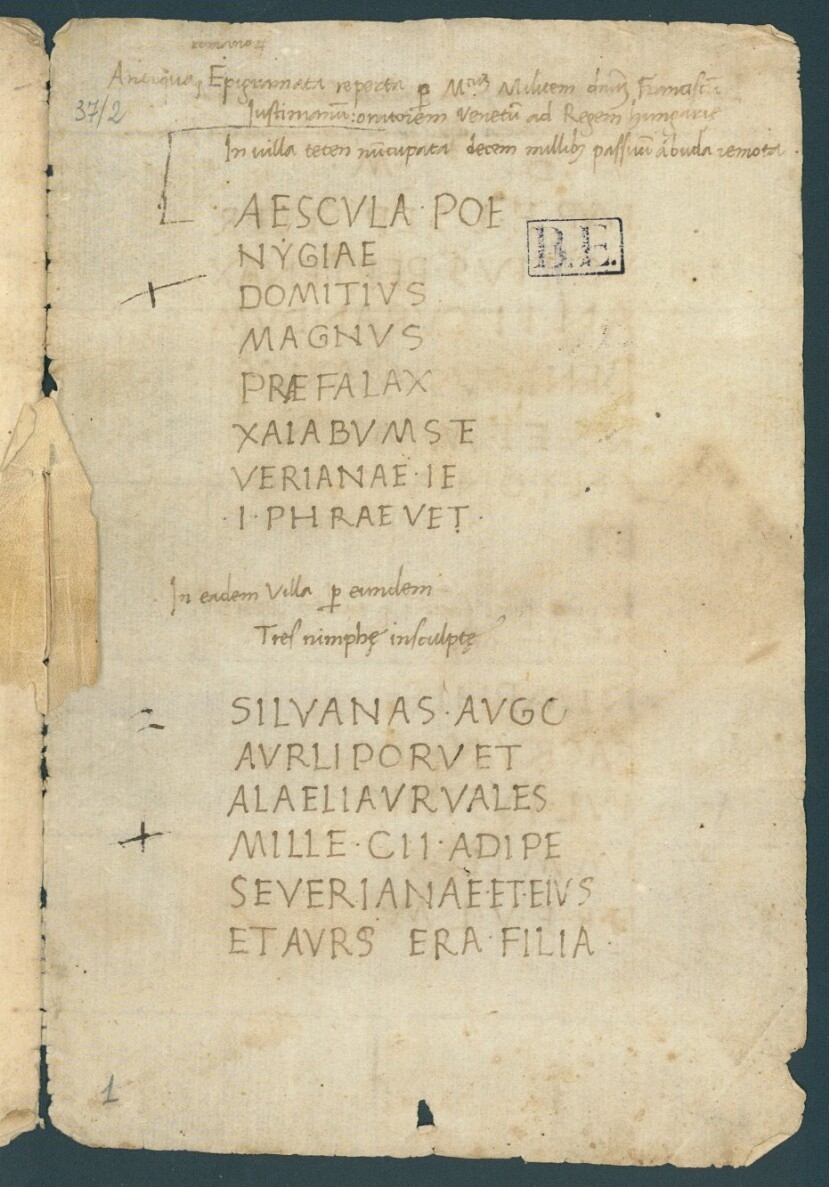 romanor
Antiqua Epigramata reperta p Mcū Militem dnȝ Franciscū
37/2
Iustinianū: oratorem Venetū ad Regem hungarie
In uilla teten nūcupata decem millibȝ passuū abuda remota
AESCVLA·POE
B.E.
NYGIAE
DOMITIVS
MAGNVS
PRÆFALAX
XAIABVMSTE
VERIANAE·IE
·I·PHRAEVET·
In eadem Villa p eundem
Tres nimphę insculptę
SILVANAS·AVGC
AVRLIPORVET
ALAELIAVRVALES
MILLE·CII·ADIPE
SEVERIANAE·ET·EIVS
ETAVRS ERA·FILIA·
1